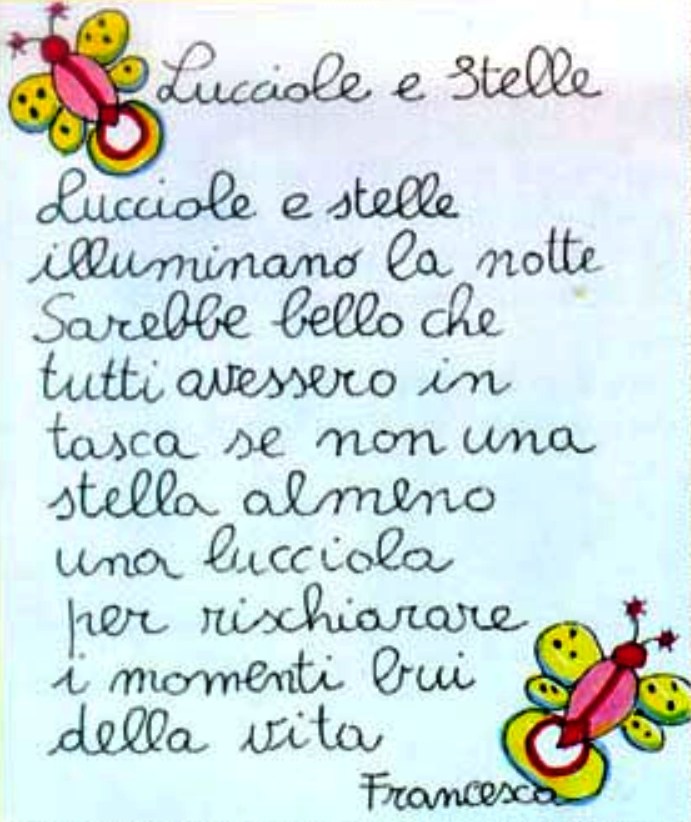 Lucciole e Stelle
Lucciole e stelle
illuminano la notte
Sarebbe bello che
tutti avessero in
tasca se non una
stella almeno
una lucciola
per rischiarare
i momenti bui
della vita
Francesca